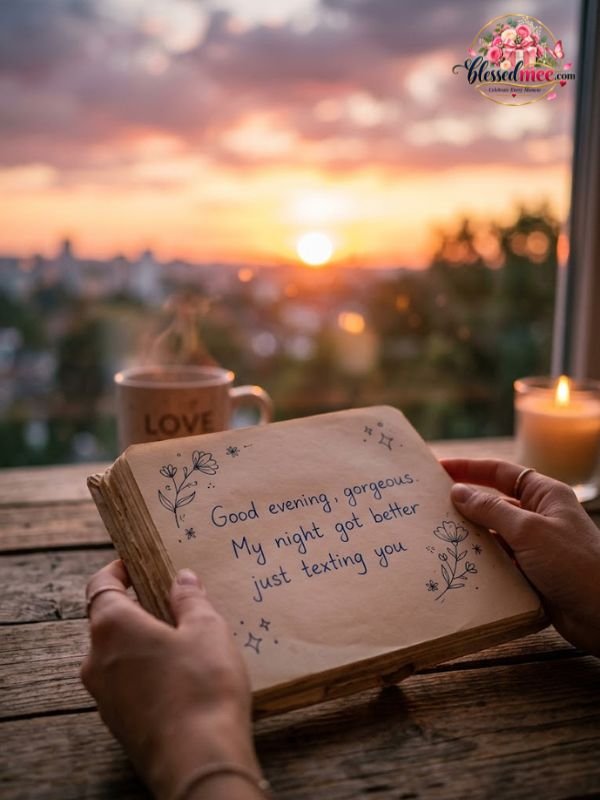 blessedmee.com
Celebrate Every Moment
LOVE
Good evening, gorgeous.
My night got better
just texting you